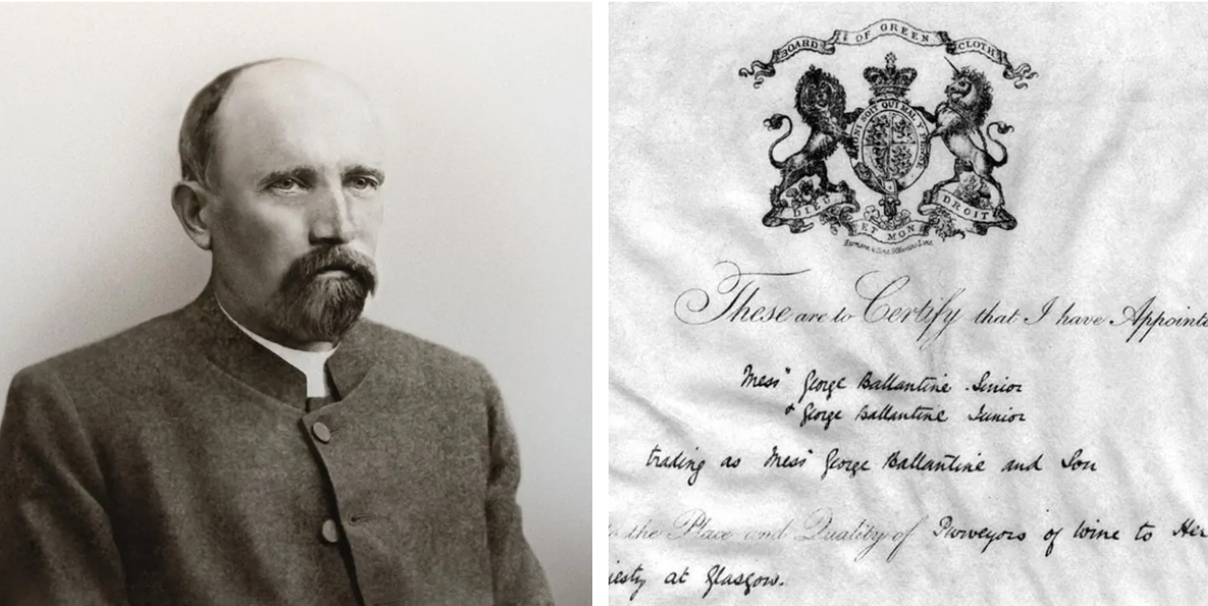 BOARD OF GREEN CLOTH
HONI SOIT QUI MAL Y PENSE
DIEU ET MON DROIT
These are to Certify that I have Appointe
Mess" George Ballantine Senior
& George Ballantine Junior
trading as Mess" George Ballantine and Son
the Place and Quality of Purveyors of Wine to Her
jesty at Glasgow.